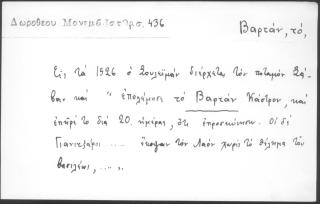 Δωροθέου Μονεμβ. Ιστορ. 436
Βαρτάν, τό,
Εἰς τὰ 1526 ὁ Σουλεϊμάν διέρχεται τὸν ποταμόν Σά-
βαν καὶ "ἐπολέμησε τὸ Βαρτάν κάστρον, καὶ
ἐπῆρέ το διὰ 20. ἡμέρας, ὅτι ἐπροσκύνησε. Οἱ δὲ
Γιανιτζάροι .... ἔκοψαν τὸν λαὸν χωρὶς τὸ θέλημα τοῦ
βασιλέως, ...."